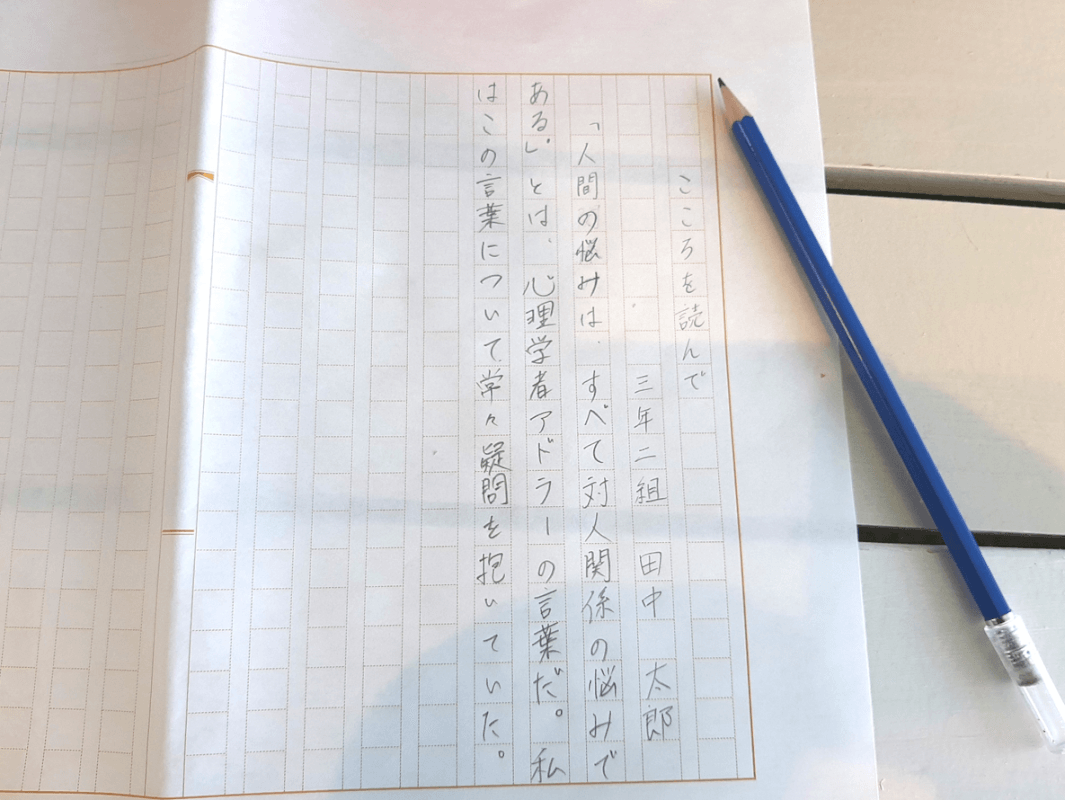 こころを読んで
三年二組 田中 太郎
「人間の悩みは、すべて対人関係の悩みで
ある。」とは、心理学者アドラーの言葉だ。私
はこの言葉について学々疑問を抱いていた。